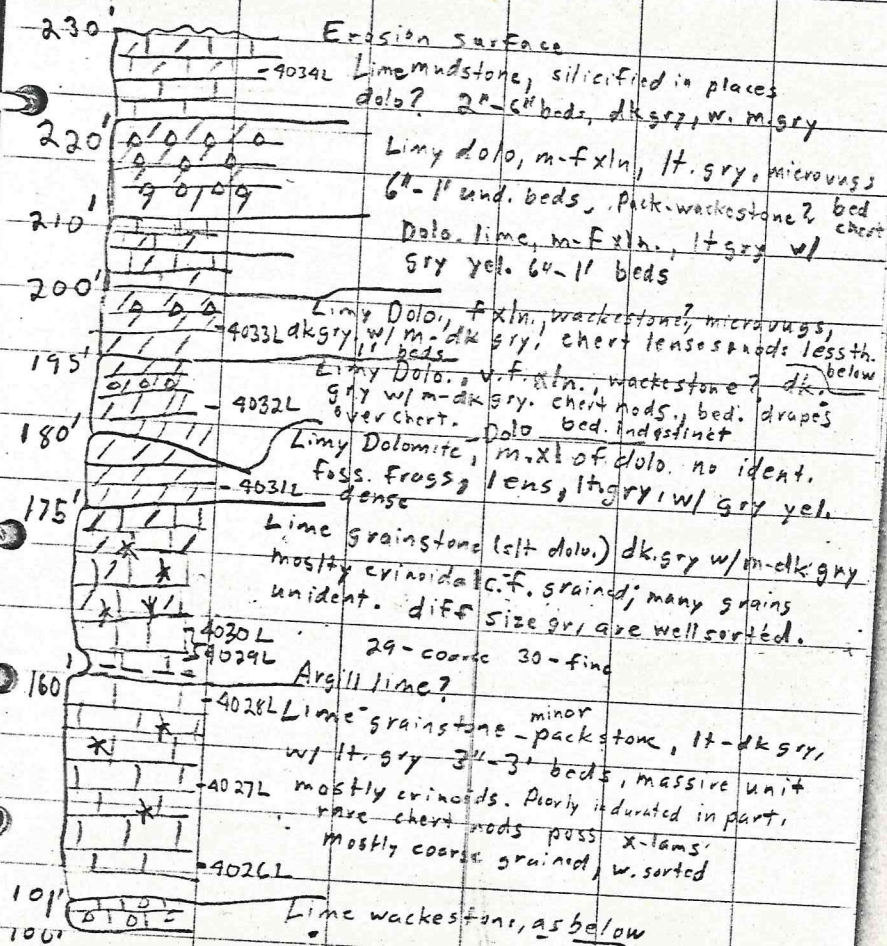 230'
Erosion surface
-4034L
Limemudstone, silicified in places
dolo? 2"-6" beds, dkgry, w. m.gry
220'
Limy dolo, m-f xln, lt. gry, microvugs
6"-1' und. beds, Pack-wackestone? bed
chert
210'
Dolo. lime, m-f xln., ltgry w/
gry yel. 6"-1' beds
200'
Limy Dolo., f xln., wackestone?, microvugs,
-4033L dkgry, w/ m-dk gry, chert lenses & nods lessth.
1' beds
below
195'
Limy Dolo., v.f. xln., wackestone? dk.
gry w/ m-dk gry. chert nods., bed. drapes
- 4032L
over chert. Dolo bed. indestinct
180'
Limy Dolomite, m.xl of dolo. no ident.
foss. frags, lens, lt.gry, w/ gry yel.
-4031L
dense
175'
Lime grainstone (slt dolo.) dk.gry w/m-dk gry
moslty crinoidal c.-f. grained; many grains
unident. diff size gr, are well sorted.
4030L
4029L
29-coarse 30-fine
160'
Argill lime?
-4028L Lime grainstone - minor packstone, lt-dk gry,
w/ lt. gry 3"-3' beds, massive unit
-4027L mostly crinoids. Poorly indurated in part,
rare chert nods poss x-lams
mostly coarse grained, w. sorted
-4026L
101'
Lime wackestone, as below
100'